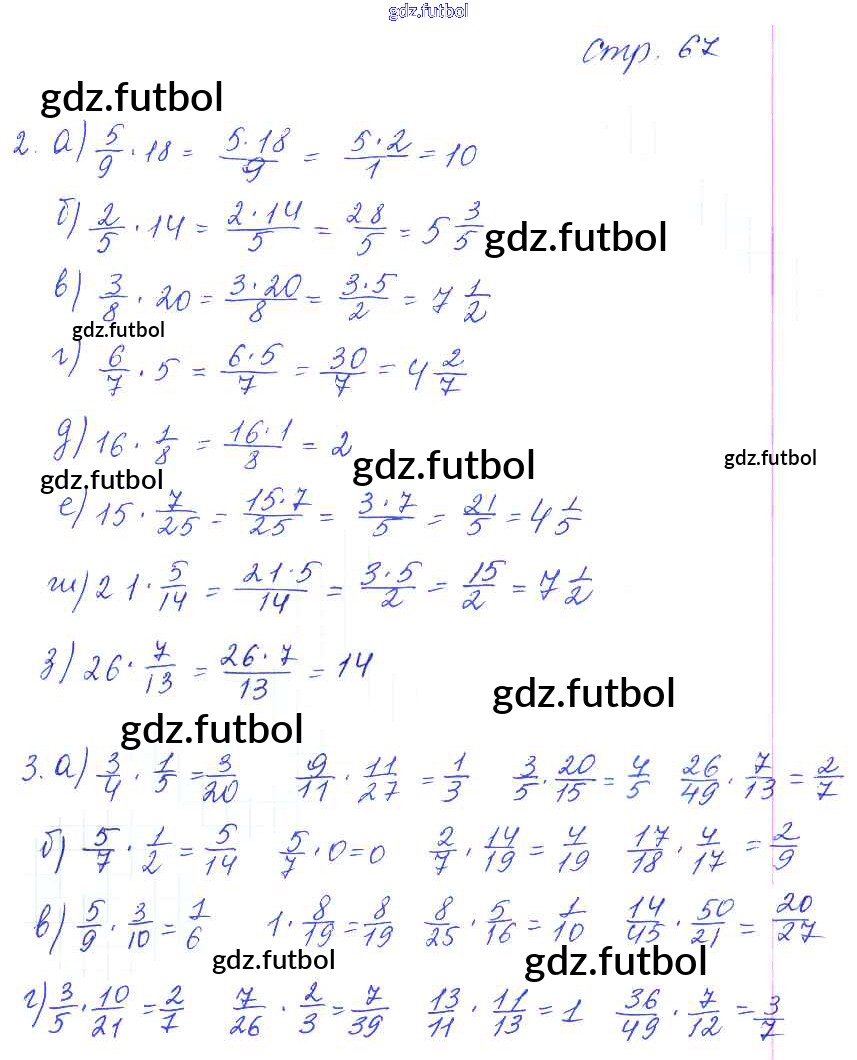 gdz.futbol
стр. 67
gdz.futbol
2. а) 5/9 · 18 = 5·18/9 = 5·2/1 = 10
б) 2/5 · 14 = 2·14/5 = 28/5 = 5 3/5
gdz.futbol
в) 3/8 · 20 = 3·20/8 = 3·5/2 = 7 1/2
gdz.futbol
г) 6/7 · 5 = 6·5/7 = 30/7 = 4 2/7
д) 16 · 1/8 = 16·1/8 = 2
gdz.futbol
gdz.futbol
gdz.futbol
е) 15 · 7/25 = 15·7/25 = 3·7/5 = 21/5 = 4 1/5
ж) 21 · 5/14 = 21·5/14 = 3·5/2 = 15/2 = 7 1/2
з) 26 · 7/13 = 26·7/13 = 14
gdz.futbol
gdz.futbol
3. а) 3/4 · 1/5 = 3/20 9/11 · 11/27 = 1/3 3/5 · 20/15 = 4/5 26/49 · 7/13 = 2/7
б) 5/7 · 1/2 = 5/14 5/7 · 0 = 0 2/7 · 14/19 = 4/19 17/18 · 4/17 = 2/9
в) 5/9 · 3/10 = 1/6 1 · 8/19 = 8/19 8/25 · 5/16 = 1/10 14/45 · 50/21 = 20/27
gdz.futbol
gdz.futbol
г) 3/5 · 10/21 = 2/7 7/26 · 2/3 = 7/39 13/11 · 11/13 = 1 36/49 · 7/12 = 3/7